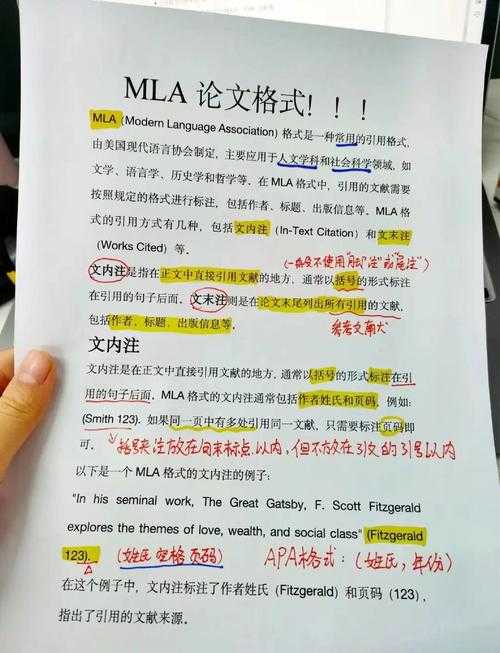 MLA 论文格式！！！
MLA (Modern Language Association) 格式是一种常用的引用格式，
由美国现代语言协会制定，主要应用于人文学科和社会科学领域，如
文学、语言学、历史学和哲学等。在 MLA 格式中，引用的文献需要
按照规定的格式进行标注，包括作者、标题、出版信息等。MLA 格
式的引用方式有几种，包括文内注 (In-Text Citation) 和文末注
(Works Cited) 等。
(一般不使用"脚注"或"尾注")
文内注是指在正文中直接引用文献的地方，通常以括号的形式标注
在引用的句子后面。文末注则是在论文末尾列出所有引用的文献，
包括作者、标题、出版信息等。
参考文献
文内注
文内注是在正文中直接引用文献的地方，通常以括号的形式标注在引
用的句子后面。MLA 格式的文内注通常包括作者姓氏和页码，例如:
(Smith 123). 如果同一页中有多处引用同一文献，只需要标注页码即
可.
括号夹注放在句末标点以内，但不放在引文的引号以内
以下是一个 MLA 格式的文内注的例子:
"In his seminal work, The Great Gatsby, F. Scott Fitzgerald
explores the themes of love, wealth, and social class" (Fitzgerald
123).
(姓氏 空格 页码)
APA格式：(姓氏，年份)
在这个例子中，文内注标注了作者姓氏 (Fitzgerald) 和页码 (123)，
指出了引用的文献来源。